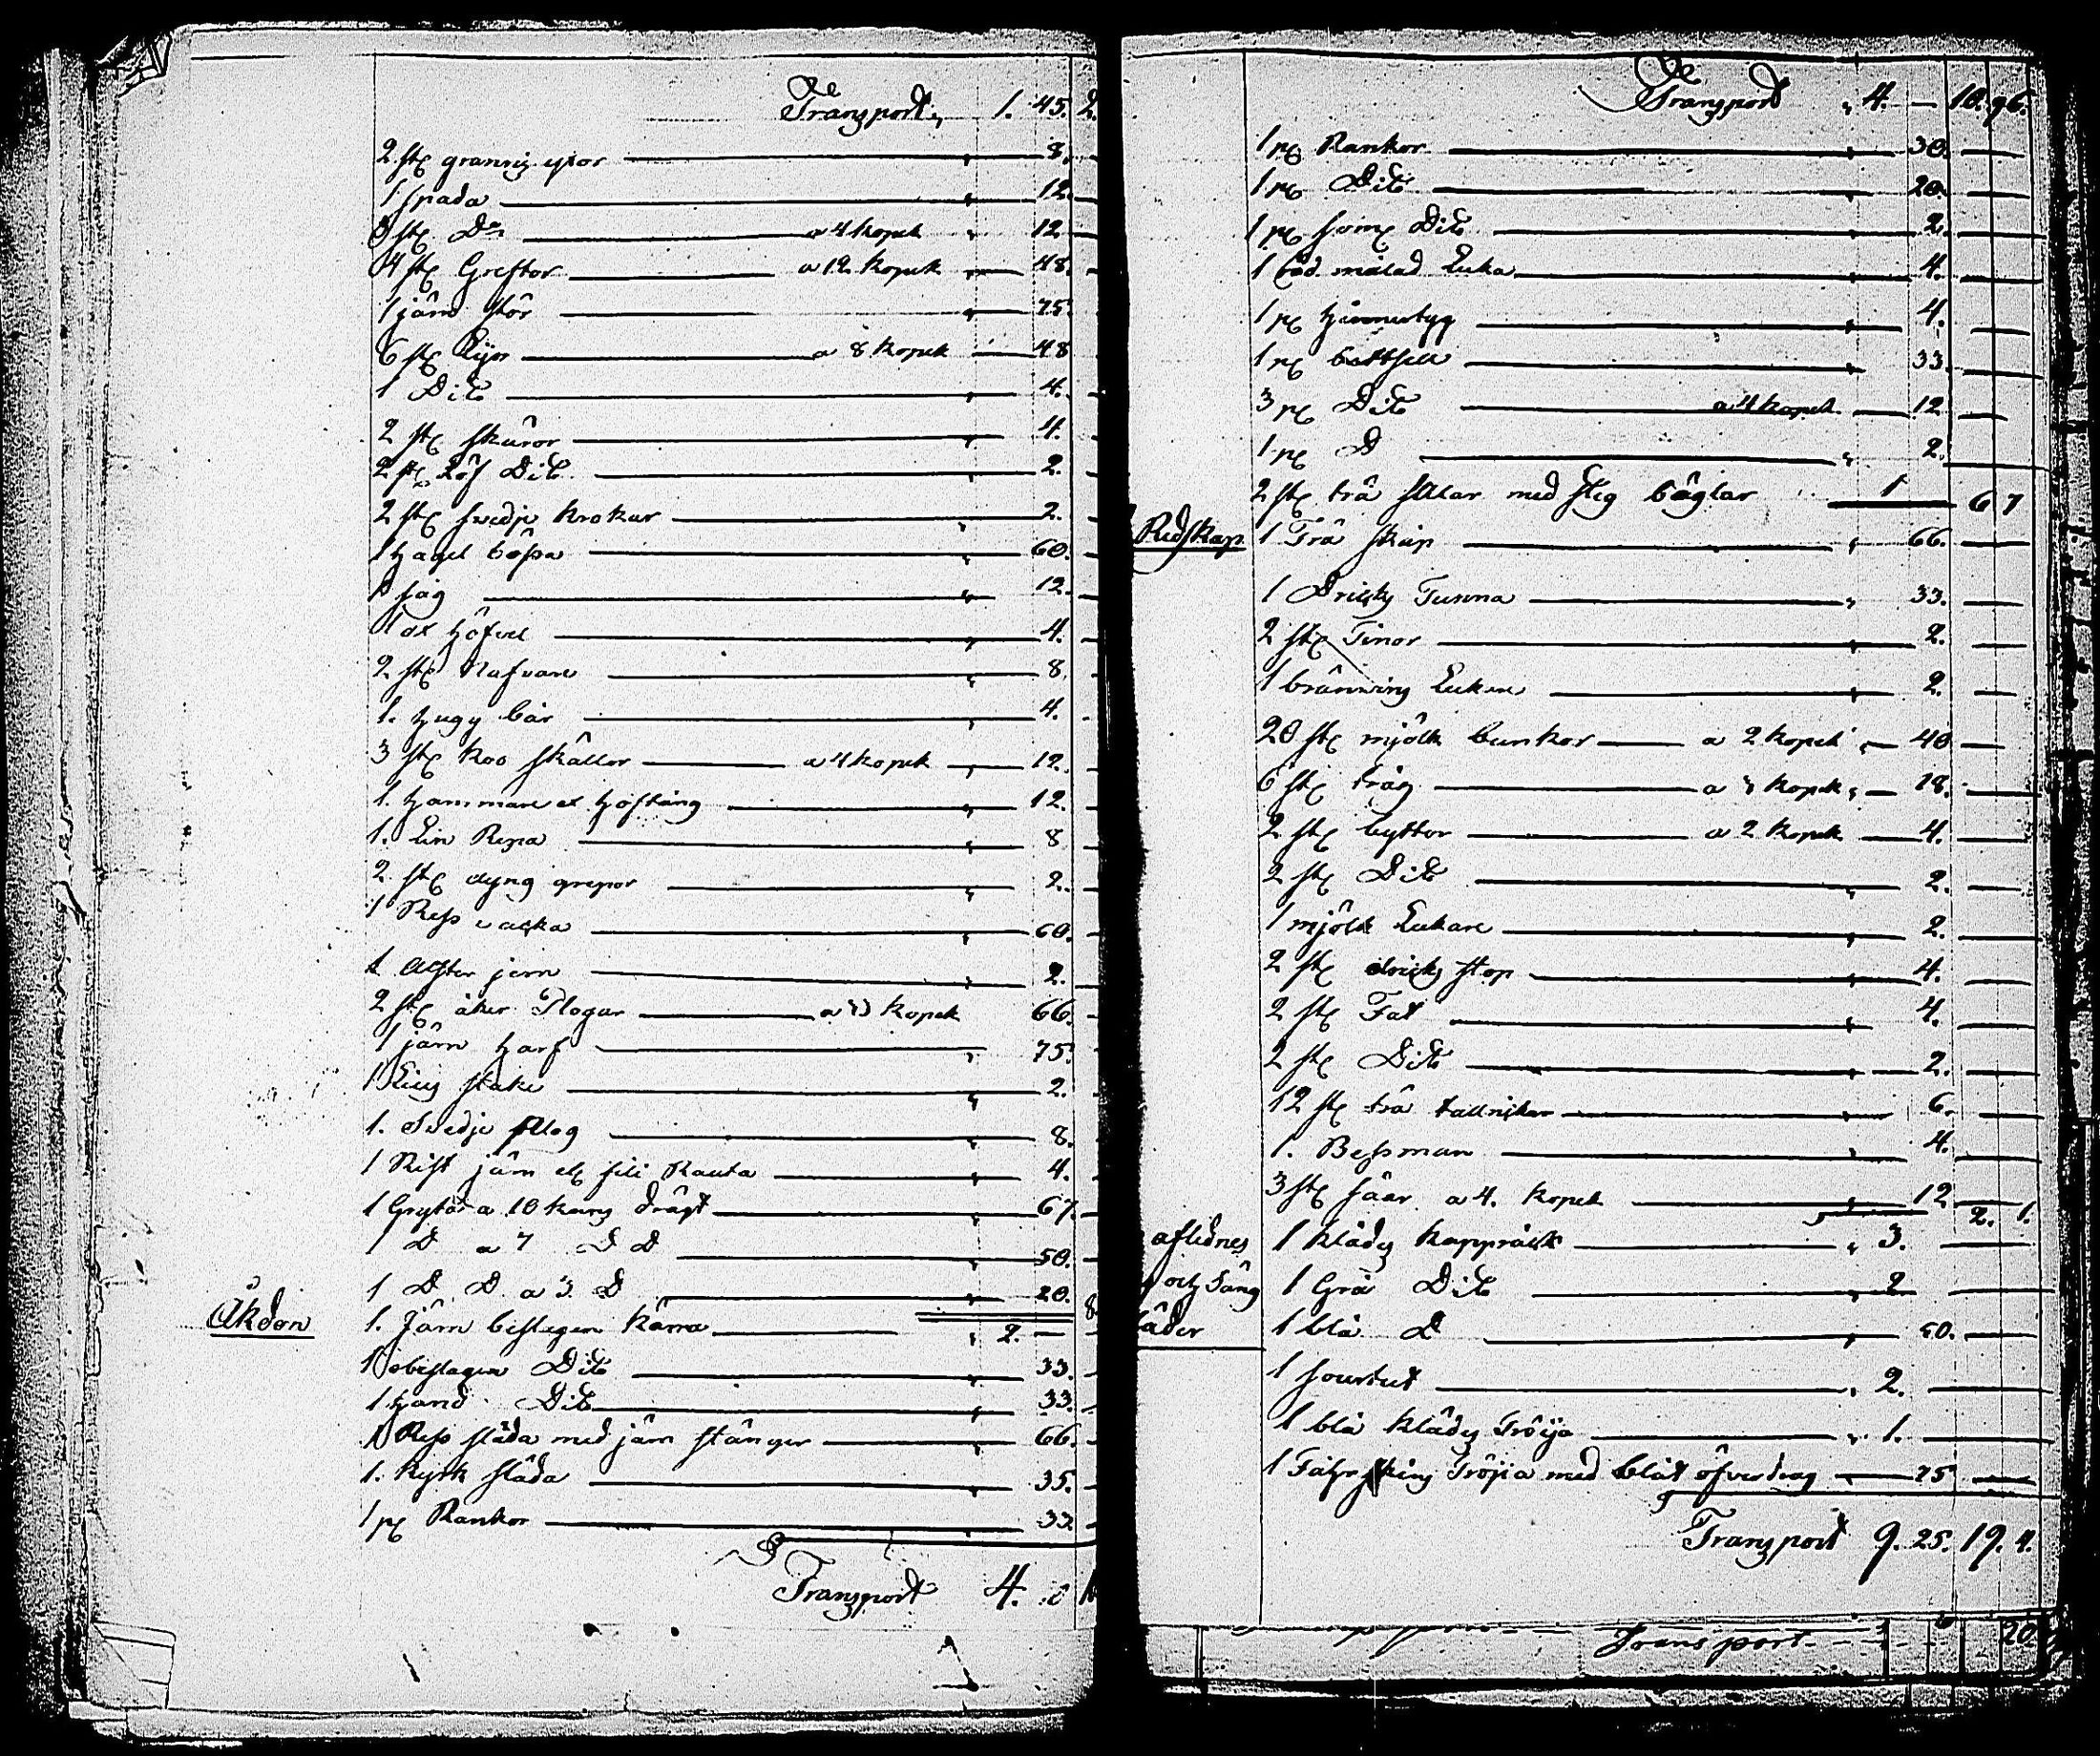 Transport, 1. 45. 2.
2 st granris yxor 8.
1 spada 12.
3 st Do a 4 kopek 12
4 st Greftor a 12 kopek 48.
1 järn stör 75.
6 st Lijor a 8 kopek 48
1 Dito 4.
2 st skäror 4.
2 st Löf Dito 2.
2 st svedje krokar 2.
1 hagel bössa 60.
1 såg 12.
1 ox höfvel 4.
2 st Nafvare 8.
1. hugg bår 4.
3 st koo skällor a 4 kopek 12.
1. hammare et hoftång 12.
1. Lin Repa 8
2 st dyng grepor 2.
1 Ress väska 60.
1 Alster jern 2.
2 st åker Plogar a 33 kopek 66.
1 järn harf 75.
1 Lius stake 2.
1. Svedje Plog 8.
1 Rist järn el sili Rauta 4.
1 Gryta a 10 kans drägt 67.
1 D a 7 D D 50.
1 D D a 3 D 20. 8
Åkdon 1. Järn beslagen Kärra 2. —
1 obeslagen Dito 33.
1 hand Dito 33.
1 Ress släda med järn stänger 66.
1. Kyrk släda 35.
1 pr Rankor 33
Transport 4.
Transport 4. — 10. 96.
1 pr Rankor 30.
1 pr Dito 20.
1 pr Dito 2.
1 röd målad Luka 4.
1 pr 4.
1 pr 33.
3 pr Dito a 4 kopek 12
1 pr D 2.
2 st trä Salar med steg bÿglar 1 6 7
Redskap 1 Trä skåp 66.
1 Dricks Tunna 33.
2 st Tinor 2.
1 bränning Lukare 2.
20 st mjölk bunkor a 2 kopek 40
6 st tråg a 3 kopek 18.
2 st byttor a 2 kopek 4.
2 st Dito 2.
1 mjölk Lukare 2.
2 st dricks stop 4.
2 st Fat 4.
2 st Dito 2.
12 st trä tallrikar 6.
1. Bessman 4.
3 st såar a 4. kopek 12 2. 1.
aflidnes 1 kläds kappråck 3.
och Säng 1 Grå Dito 2
åder 1 blå D 50.
1 Sourtut 2.
1 blå kläds Tröija 1.
1 Tröjja med blåt öfverdrag 75
Transport 9. 25. 19. 4.
Transport 20